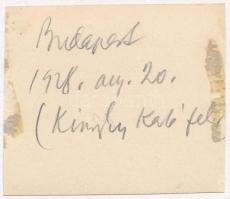 Budapest
1928. aug. 20.
(Kinszky Kató fel.